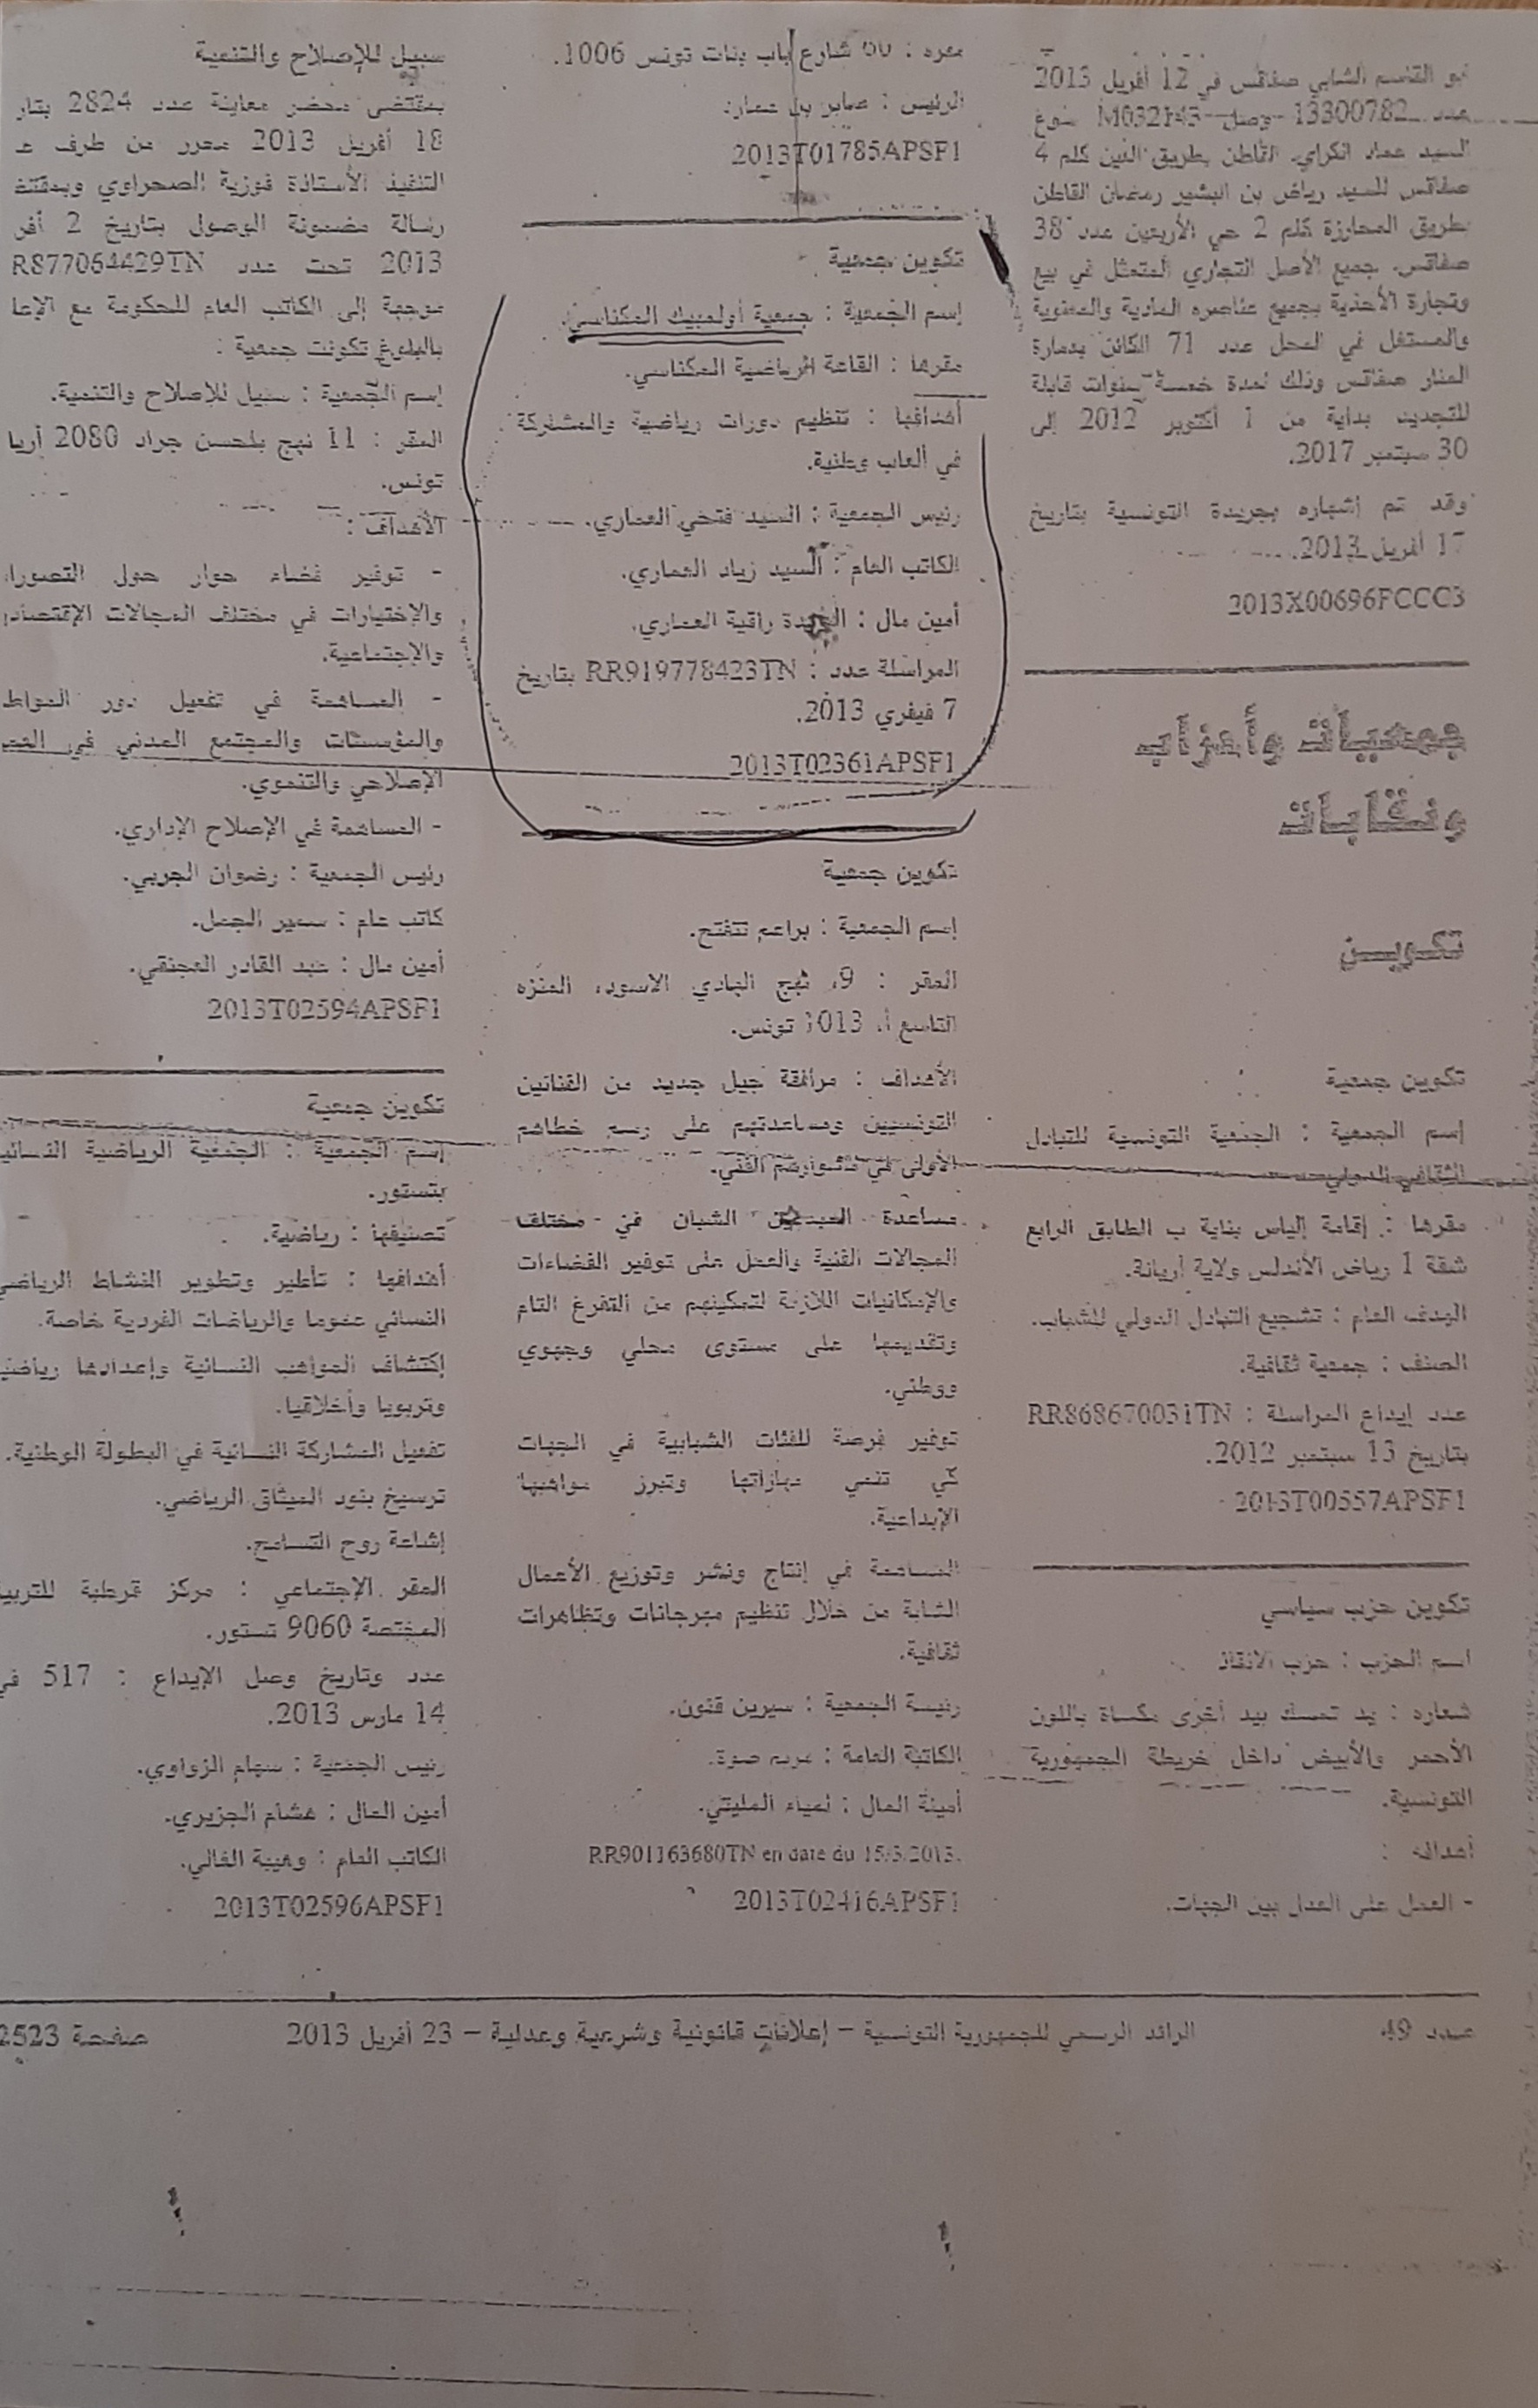 أبو القاسم الشابي صفاقس في 12 أفريل 2013
عدد 13300782 وصل M032143 سوغ
السيد عماد الكراي القاطن بطريق العين كلم 4
صفاقس للسيد رياض بن البشير رمضان القاطن
بطريق المحارزة كلم 2 حي الأربعين عدد 38
صفاقس. جميع الأصل التجاري المتمثل في بيع
وتجارة الأحذية بجميع عناصره المادية والمعنوية
والمستغل في المحل عدد 71 الكائن بعمارة
المنار صفاقس وذلك لمدة خمسة سنوات قابلة
للتجديد بداية من 1 أكتوبر 2012 إلى
30 سبتمبر 2017.
وقد تم إشهاره بجريدة التونسية بتاريخ
17 أفريل 2013.
2013X00696FCCC3
جمعيات وأحزاب
ونقابات
تكويـن
تكوين جمعية
إسم الجمعية : الجمعية التونسية للتبادل
الثقافي الدولي.
مقرها : إقامة إلياس بناية ب الطابق الرابع
شقة 1 رياض الأندلس ولاية أريانة.
الهدف العام : تشجيع التبادل الدولي للشباب.
الصنف : جمعية ثقافية.
عدد إيداع المراسلة : RR868670031TN
بتاريخ 13 سبتمبر 2012.
2013T00557APSF1
تكوين حزب سياسي
اسم الحزب : حزب الانقاذ
شعاره : يد تمسك بيد أخرى مكساة باللون
الأحمر والأبيض داخل خريطة الجمهورية
التونسية.
أهدافه :
- العمل على العدل بين الجهات.
مقره : 60 شارع باب بنات تونس 1006.
الرئيس : صابر بن عمار.
2013T01785APSF1
تكوين جمعية
إسم الجمعية : جمعية أولمبيك المكناسي.
مقرها : القاعة الرياضية المكناسي.
أهدافها : تنظيم دورات رياضية والمشاركة
في ألعاب وطنية.
رئيس الجمعية : السيد فتحي العماري.
الكاتب العام : السيد زياد العماري.
أمين مال : السيدة راقية العماري.
المراسلة عدد : RR919778423TN بتاريخ
7 فيفري 2013.
2013T02361APSF1
تكوين جمعية
إسم الجمعية : براعم تتفتح.
المقر : 9، نهج الهادي الاسود، المنزه
التاسع أ، 1013 تونس.
الأهداف : مرافقة جيل جديد من الفنانين
التونسيين ومساعدتهم على رسم خطاهم
الأولى في مشوارهم الفني.
مساعدة المبدعين الشبان في مختلف
المجالات الفنية والعمل على توفير الفضاءات
والإمكانيات اللازمة لتمكينهم من التفرغ التام
وتقديمها على مستوى محلي وجهوي
ووطني.
توفير فرصة للفئات الشبابية في الجهات
كي تنمي مهاراتها وتبرز مواهبها
الإبداعية.
المساهمة في إنتاج ونشر وتوزيع الأعمال
الشابة من خلال تنظيم مهرجانات وتظاهرات
ثقافية.
رئيسة الجمعية : سيرين قنون.
الكاتبة العامة : مريم صوة.
أمينة المال : لمياء المليتي.
RR901163680TN en date du 15/3/2013.
2013T02416APSF1
سبيل للإصلاح والتنمية
بمقتضى محضر معاينة عدد 2824 بتار
18 أفريل 2013 محرر من طرف عـ
التنفيذ الأستاذة فوزية الصحراوي وبمقتضـ
رسالة مضمونة الوصول بتاريخ 2 أفر
2013 تحت عدد R877064429TN
موجهة إلى الكاتب العام للحكومة مع الإعا
بالبلوغ تكونت جمعية :
إسم الجمعية : سبيل للإصلاح والتنمية.
المقر : 11 نهج بلحسن جراد 2080 أريا
تونس.
الأهداف :
- توفير فضاء حوار حول التصورا
والإختيارات في مختلف المجالات الإقتصادي
والإجتماعية.
- المساهمة في تفعيل دور المواط
والمؤسسات والمجتمع المدني في العمـ
الإصلاحي والتنموي.
- المساهمة في الإصلاح الإداري.
رئيس الجمعية : رضوان الجربي.
كاتب عام : سمير الجمل.
أمين مال : عبد القادر المجنقي.
2013T02594APSF1
تكوين جمعية
إسم الجمعية : الجمعية الرياضية النسائيـ
بتستور.
تصنيفها : رياضية.
أهدافها : تأطير وتطوير النشاط الرياضي
النسائي عموما والرياضات الفردية خاصة.
إكتشاف المواهب النسائية وإعدادها رياضيـ
وتربويا وأخلاقيا.
تفعيل المشاركة النسائية في البطولة الوطنية.
ترسيخ بنود الميثاق الرياضي.
إشاعة روح التسامح.
المقر الإجتماعي : مركز قرطبة للتربيـ
المختصة 9060 تستور.
عدد وتاريخ وصل الإيداع : 517 في
14 مارس 2013.
رئيس الجمعية : سهام الزواوي.
أمين المال : هشام الجزيري.
الكاتب العام : وهيبة الغالي.
2013T02596APSF1
عدد 49
الرائد الرسمي للجمهورية التونسية – إعلانات قانونية وشرعية وعدلية – 23 أفريل 2013
صفحة 2523